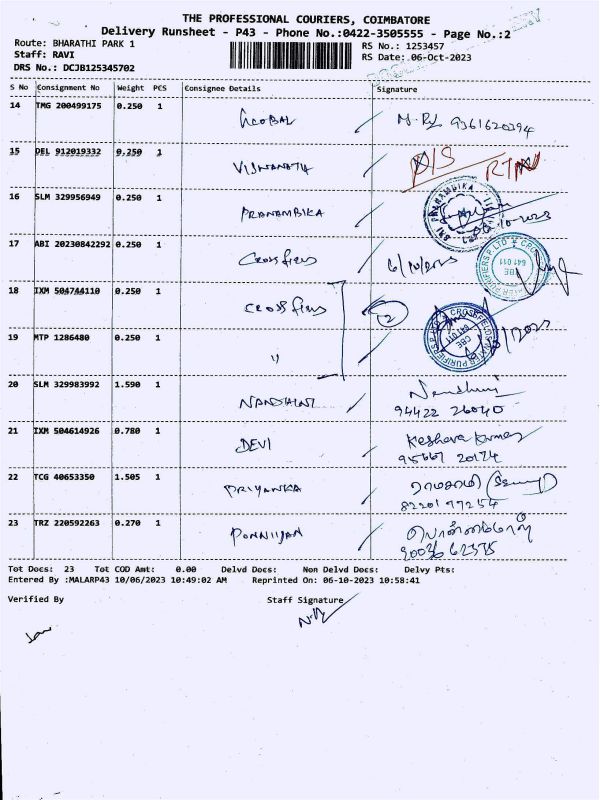 THE PROFESSIONAL COURIERS, COIMBATORE
Delivery Runsheet - P43 - Phone No.:0422-3505555 - Page No.:2
Route: BHARATHI PARK 1
Staff: RAVI
DRS No.: DCJB125345702
RS No.: 1253457
RS Date: 06-Oct-2023
S No Consignment No Weight PCS Consignee Details Signature
14 TMG 200499175 0.250 1 GLOBAL 9361620294
15 DEL 912019332 0.250 1 VISWANATH D/S RTN
16 SLM 329956949 0.250 1 PRANAMBIKA
SRI PRANAMBIKA
17 ABI 20230842292 0.250 1 Crossfields 6/10/2023
WATER PURIFIERS P. LTD
CBE
641 011
18 IXM 504744110 0.250 1 Crossfields 2
19 MTP 1286480 0.250 1 "
CROSSFIELDS WATER PURIFIERS P. LTD
CBE
641 011
20 SLM 329983992 1.590 1 NANDHINI Nandhini
94422 26040
21 IXM 504614926 0.780 1 DEVI Keshava Kumar
95667 20174
22 TCG 40653350 1.505 1 PRIYANKA
8220197254
23 TRZ 220592263 0.270 1
Tot Docs: 23 Tot COD Amt: 0.00 Delvd Docs: Non Delvd Docs: Delvy Pts:
Entered By :MALARP43 10/06/2023 10:49:02 AM Reprinted On: 06-10-2023 10:58:41
Verified By Staff Signature